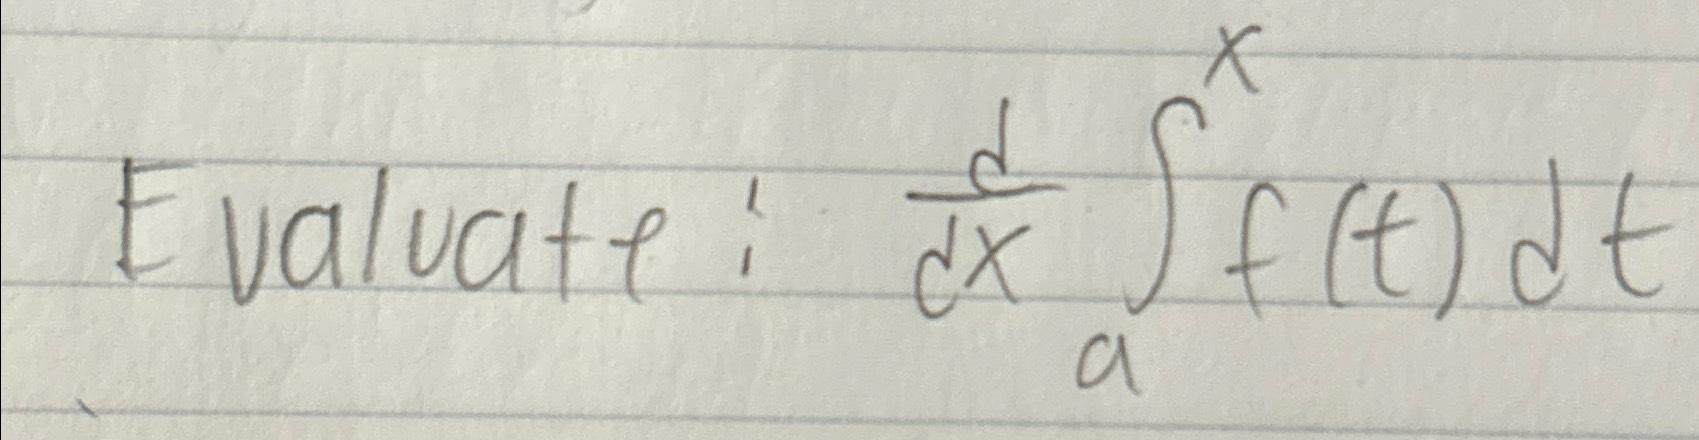 Evaluate: d/dx ∫_a^x f(t) dt